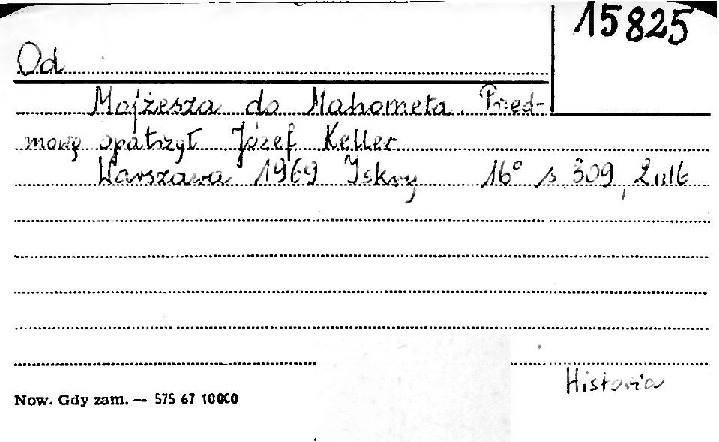 15825
Od
Mojżesza do Mahometa. Przed-
mową opatrzył Józef Keller
Warszawa 1969 Iskry 16° s 309,
Historia
Now. Gdy zam. — 575 67 10000